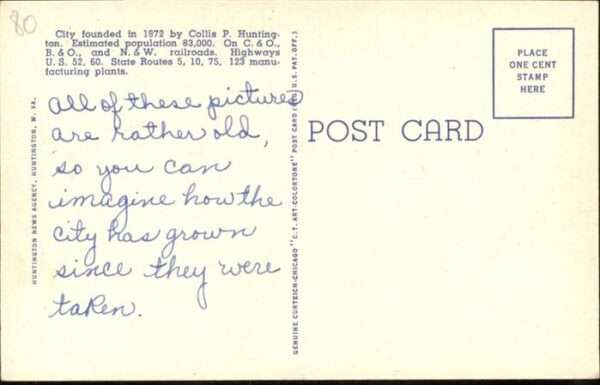 80
City founded in 1872 by Collis P. Hunting-
ton. Estimated population 83,000. On C. & O.,
B. & O., and N. & W. railroads. Highways
U. S. 52, 60. State Routes 5, 10, 75, 123 manu-
facturing plants.
all of these pictures
are rather old,
so you can
imagine how the
city has grown
since they were
taken.
HUNTINGTON NEWS AGENCY, HUNTINGTON, W. VA.
GENUINE CURTEICH-CHICAGO "C. T. ART-COLORTONE" POST CARD (REG. U. S. PAT. OFF.)
POST CARD
PLACE
ONE CENT
STAMP
HERE